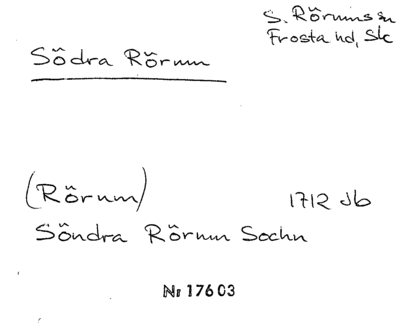 S. Rörums sn
Frosta hd, Sk
Södra Rörum
(Rörum)
1712 Jb
Söndra Rörum Sochn
Nr 17603